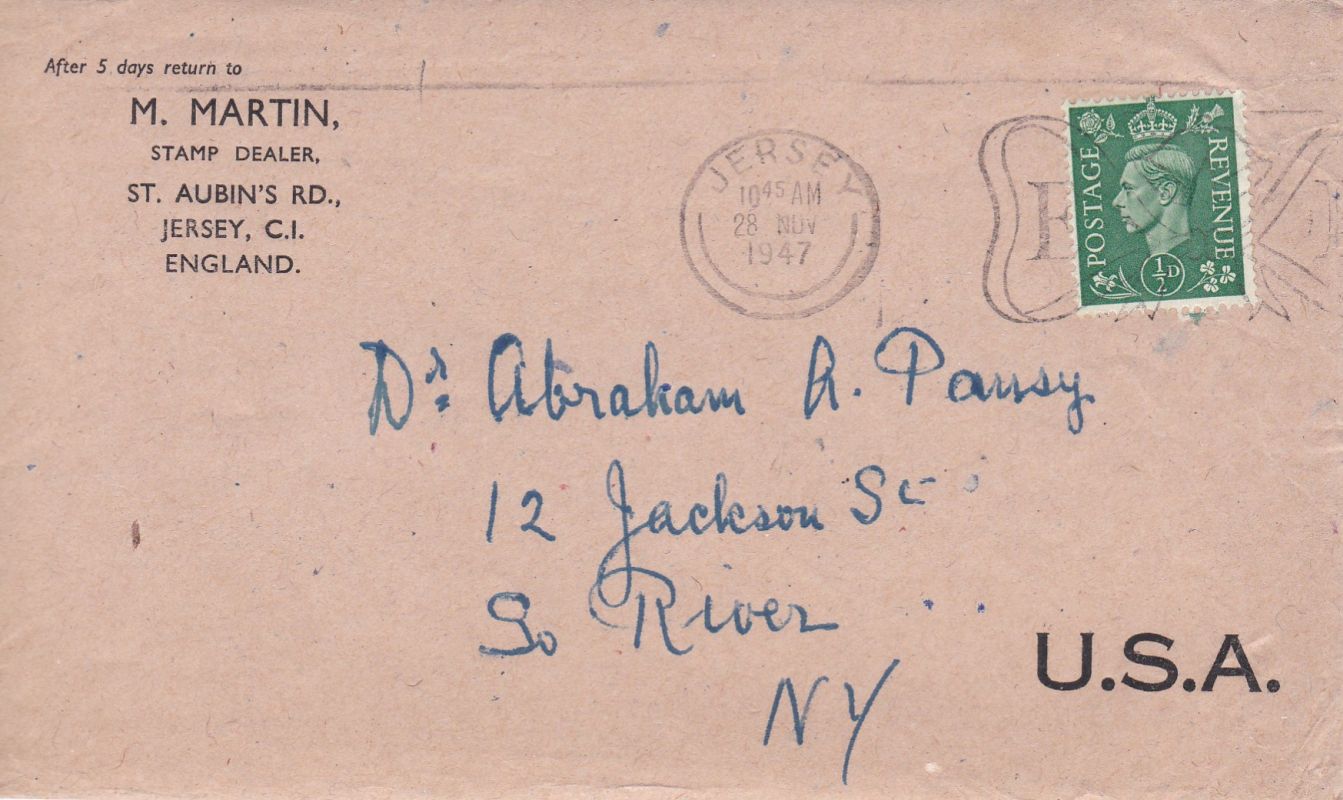 After 5 days return to
M. MARTIN,
STAMP DEALER,
ST. AUBIN'S RD.,
JERSEY, C.I.
ENGLAND.
JERSEY
10 45 AM
28 NOV
1947
POSTAGE
REVENUE
½D
Dr. Abraham A. Pansy
12 Jackson St
So River
NY
U.S.A.